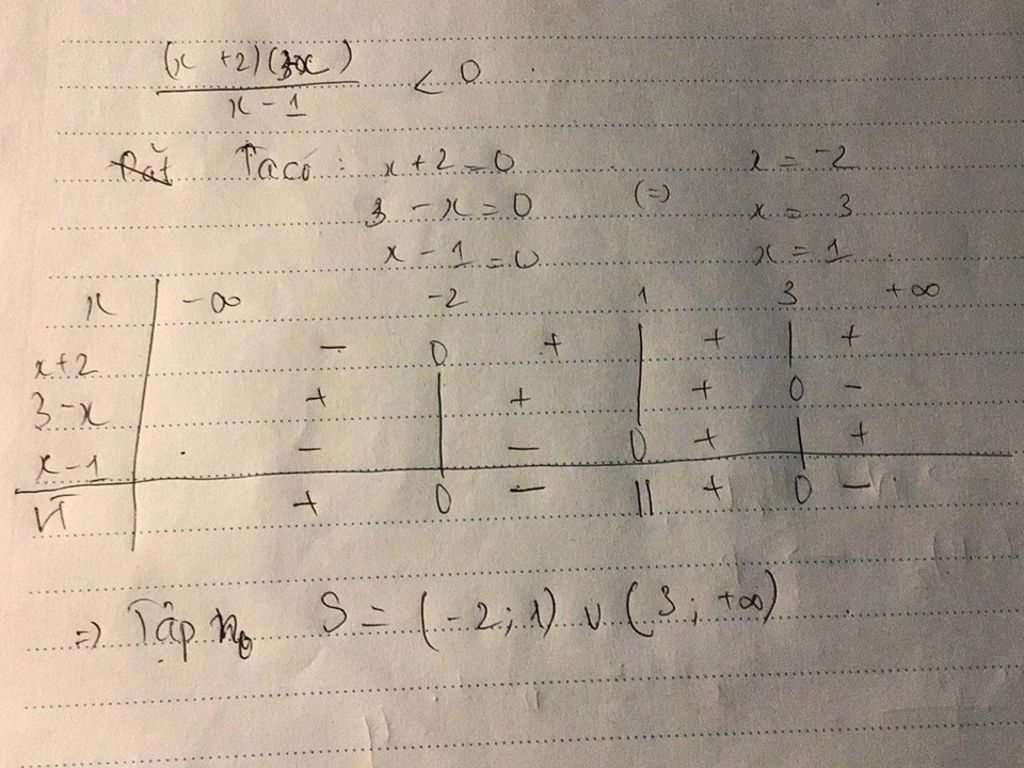 (x +2)(3-x)
x - 1
< 0
Đặt Ta có : x + 2 = 0 x = -2
3 - x = 0 (=) x = 3
x - 1 = 0 x = 1
x -∞ -2 1 3 +∞
x+2 - 0 + | + | +
3-x + | + | + 0 -
x-1 - | - 0 + | +
VT + 0 - || + 0 -
=> Tập no S = (-2; 1) ∪ (3; +∞)